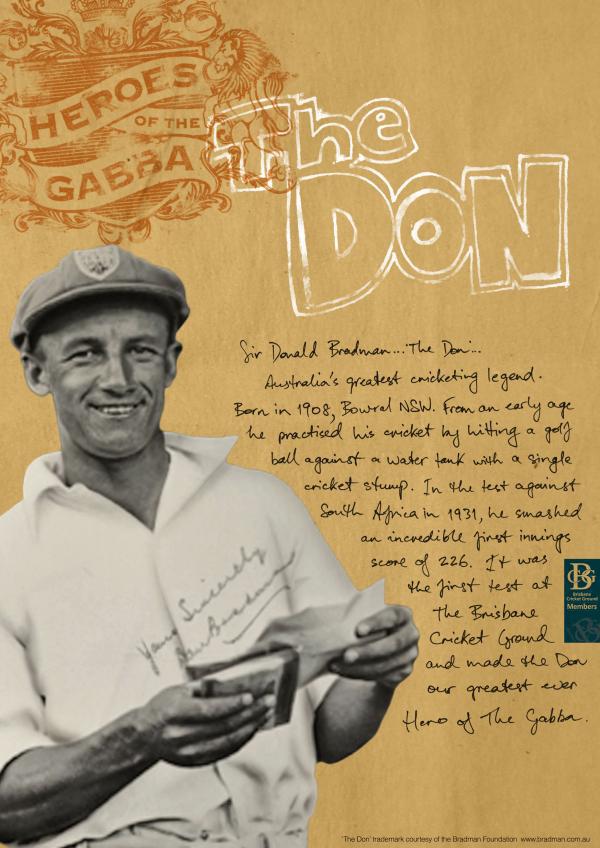 HEROES
OF THE
GABBA
The
DON
Sir Donald Bradman...'The Don'...
Australia's greatest cricketing legend.
Born in 1908, Bowral NSW. From an early age
he practiced his cricket by hitting a golf
ball against a water tank with a single
cricket stump. In the test against
South Africa in 1931, he smashed
an incredible first innings
score of 226. It was
the first test at
The Brisbane
Cricket Ground
and made the Don
our greatest ever
Hero of The Gabba.
Yours Sincerely
Don Bradman
BCG
Brisbane
Cricket Ground
Members
'The Don' trademark courtesy of the Bradman Foundation www.bradman.com.au